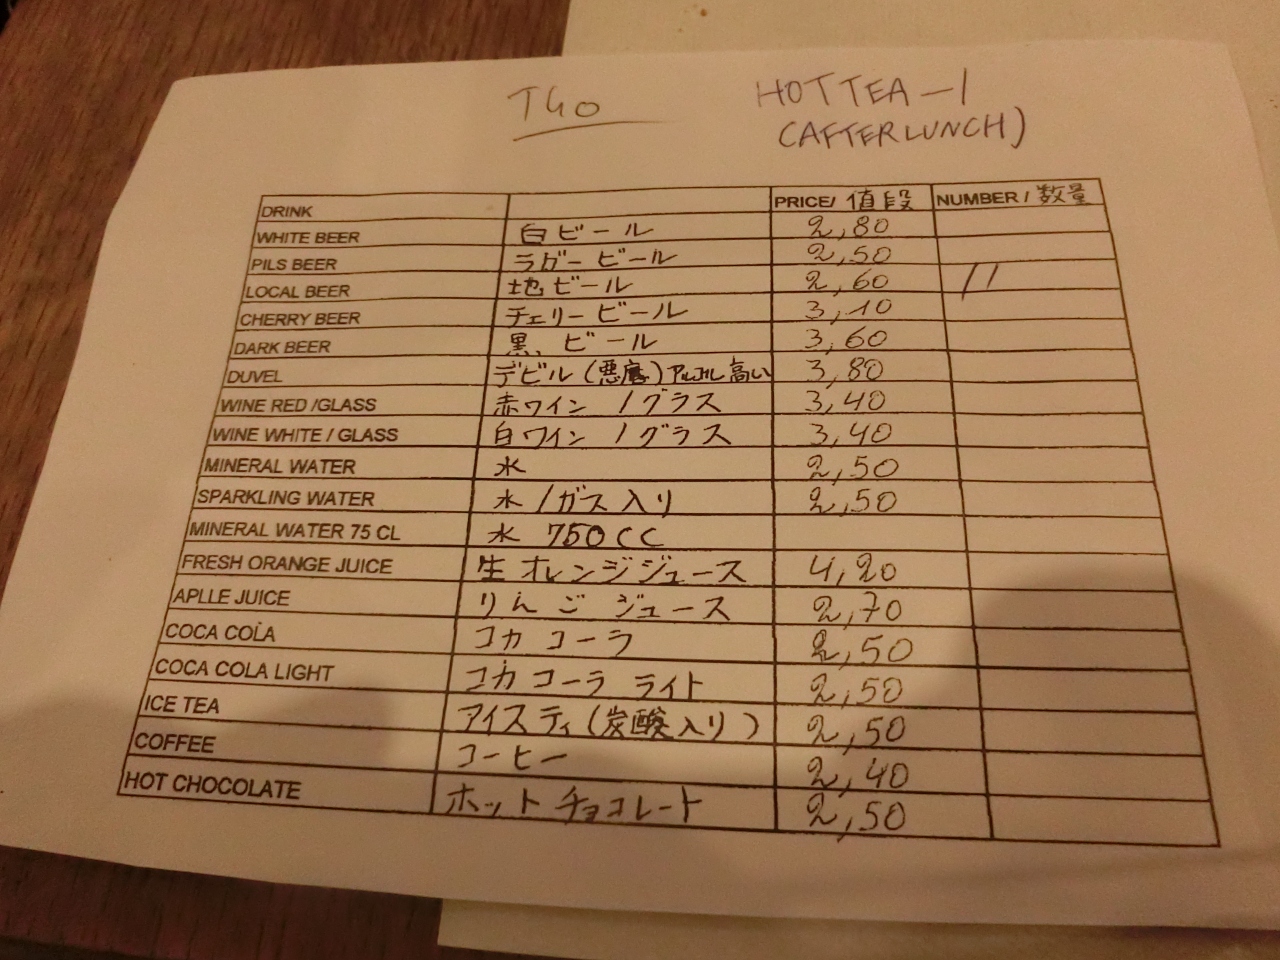 T40
HOT TEA - 1
(AFTER LUNCH)
DRINK PRICE/ 値段 NUMBER / 数量
WHITE BEER 白ビール 2,80
PILS BEER ラガービール 2,50
LOCAL BEER 地ビール 2,60 //
CHERRY BEER チェリービール 3,10
DARK BEER 黒ビール 3,60
DUVEL デビル (悪魔) アルコール高い 3,80
WINE RED /GLASS 赤ワイン / グラス 3,40
WINE WHITE / GLASS 白ワイン / グラス 3,40
MINERAL WATER 水 2,50
SPARKLING WATER 水 / ガス入り 2,50
MINERAL WATER 75 CL 水 750CC
FRESH ORANGE JUICE 生オレンジジュース 4,20
APLLE JUICE りんごジュース 2,70
COCA COLA コカコーラ 2,50
COCA COLA LIGHT コカコーラ ライト 2,50
ICE TEA アイスティ (炭酸入り) 2,50
COFFEE コーヒー 2,40
HOT CHOCOLATE ホットチョコレート 2,50